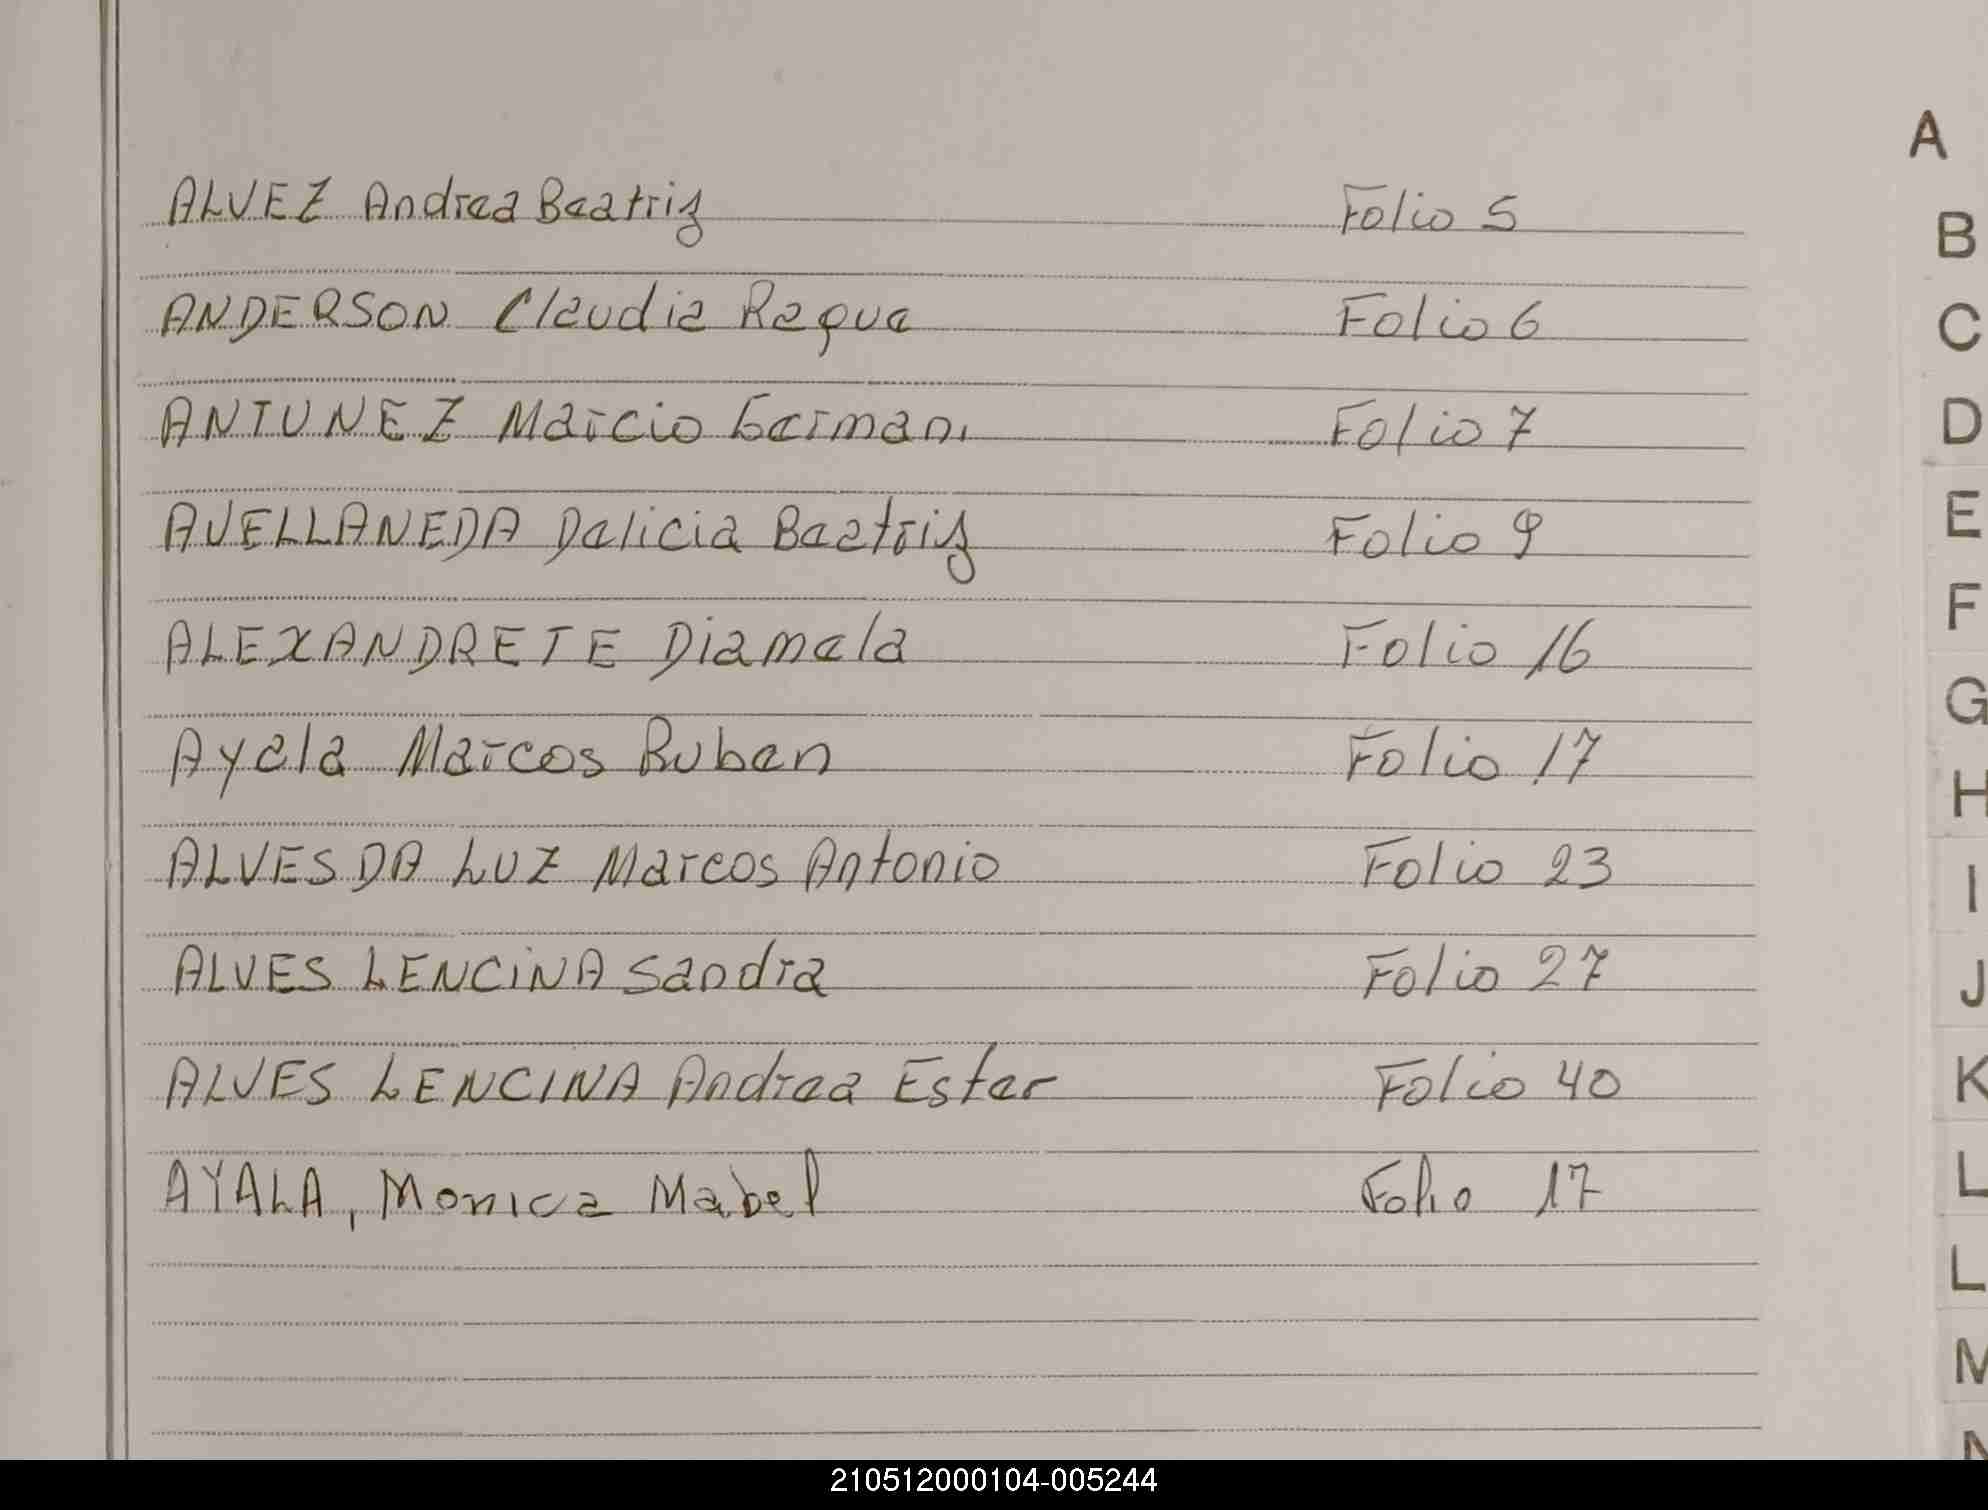 ALVEZ Andrea Beatriz Folio 5
ANDERSON Claudia Raque Folio 6
ANTUNEZ Marcio German Folio 7
AVELLANEDA Delicia Beatriz Folio 9
ALEXANDRETE Diamela Folio 16
Ayala Marcos Ruben Folio 17
ALVES DA LUZ Marcos Antonio Folio 23
ALVES LENCINA Sandra Folio 27
ALVES LENCINA Andrea Ester Folio 40
AYALA, Monica Mabel Folio 17
A
B
C
D
E
F
G
H
I
J
K
L
L
M
N
210512000104-005244